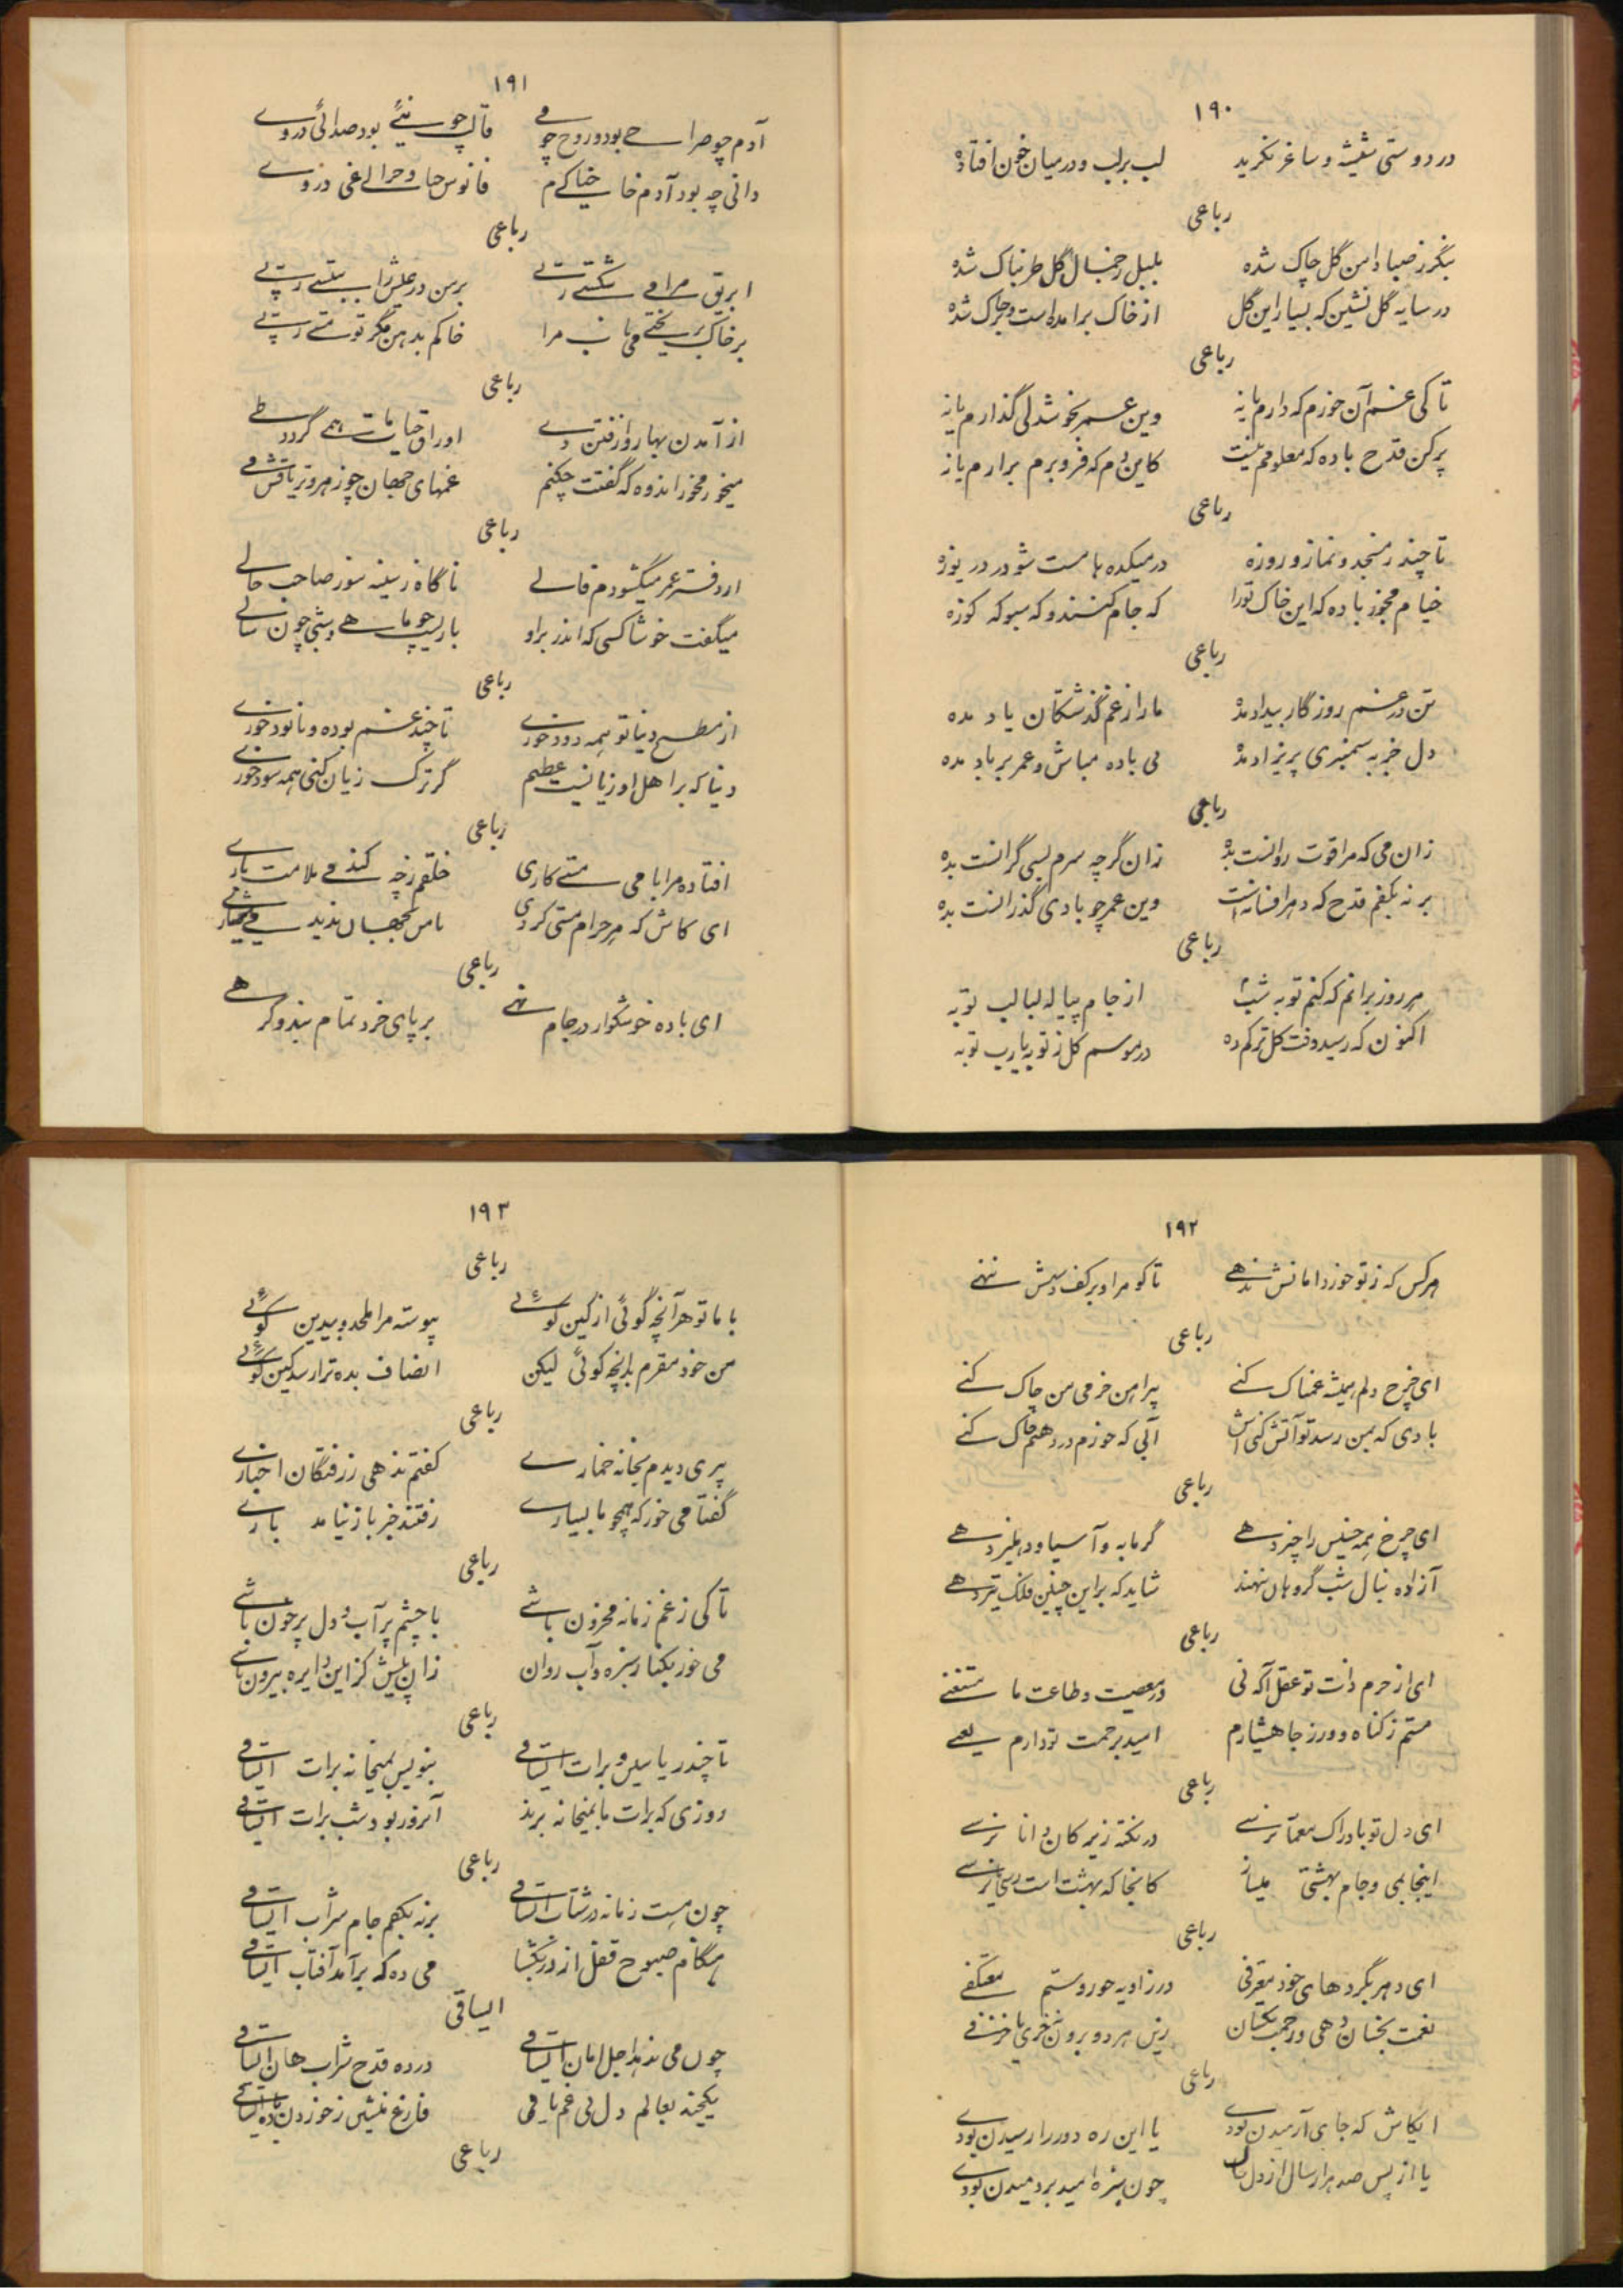 ۱۹۰
در دوستی شیشه و ساغر نگرید لب بر لب و در میان خون افتاده
رباعی
بنگر ز صبا دامن گل چاک شده بلبل ز جمال گل طربناک شده
در سایه گل نشین که بسیار این گل از خاک برآمده است و در خاک شده
رباعی
تا کی غم آن خورم که دارم یا نه وین عمر بخوشدلی گذارم یا نه
پر کن قدح باده که معلومم نیست کاین دم که فرو برم برارم یا نه
رباعی
تا چند ز مسجد و نماز و روزه در میکده ها مست شو در دریوزه
خیام بخور باده که این خاک ترا که جام کنند و که سبو که کوزه
رباعی
تن در غم روزگار بیداد مده ما را ز غم گذشتگان یاد مده
دل جز به سمنبری پریزاد مده بی باده مباش و عمر بر باد مده
رباعی
زان می که مرا قوت روانست بده زان گرچه سرم بسی گرانست بده
بر نه بکفم قدح که دهر افسانه است وین عمر چو بادی گذرانست بده
رباعی
هر روز برانم که کنم توبه شب از جام پیاله لبالب توبه
اکنون که رسید وقت گل ترکم ده در موسم گل ز توبه یارب توبه
۱۹۱
آدم چو صراحی بود و روح چو می قالب چو نیئ بود صدائی در وے
دانی چه بود آدم خاکی خیام فانوس خیالی و چراغی در وے
رباعی
ابریق می مرا شکستی ربی بر من در عیش را ببستی ربی
بر خاک بریختی می ناب مرا خاکم بدهن مگر تو مستی ربی
رباعی
از آمدن بهار و از رفتن دے اوراق حیات ما همی گردد طے
میخور مخور اندوه که گفتت حکیم غمهای جهان چو زهر و تریاقش مے
رباعی
از دفتر عمر میگشودم فالے ناگاه ز سینه سوز صاحب حالے
میگفت خوشا کسی که اندر بر او یاریست چو ماهے و شبی چون سالے
رباعی
از مطبخ دنیا تو همه دود خورے تا چند غم بوده و نابود خورے
دنیا که بر اهل او زیانیست عظیم گر ترک زیان کنی همه سود خورے
رباعی
افتاده مرا با می و مستی کاری خلقم ز چه میکند ملامت بارے
ای کاش که هر حرام مستی کردی تا من بجهان ندیدمی هشیارے
رباعی
ای باده خوشگوار در جام نهے بر پای خرد تمام بند و گرهے
۱۹۲
هر کس که ز تو خورد امانش ندهے تا گوهر او بر کف دستش ننهے
رباعی
ای چرخ دلم همیشه غمناک کنے پیراهن خرمی من چاک کنے
بادی که بمن رسد تو آتش کنی اش آبی که خورم در دهنم خاک کنے
رباعی
ای چرخ همه خسیس را چیز دهے گرمابه و آسیا و دهلیز دهے
آزاده بنان شب گروهان بنهند شاید که بر این چنین فلک تیز دهے
رباعی
ای از حرم ذات تو عقل آگه نی در معصیت و طاعت ما مستغنے
مستم ز گناه و ور رجا هشیارم امید برحمت تو دارم یعنے
رباعی
ای دل تو بادراک معما نرسے در نکته زیرکان دانا نرسے
اینجا بمی و جام بهشتی میساز کانجا که بهشت است رسی یا نرسے
رباعی
ای دهر بگردهای خود معترفی در زاویه جور و ستم معتکفے
نعمت بخسان دهی و زحمت بکسان زین هر دو برون نه خری یا خرفے
رباعی
ایکاش که جای آرمیدن بودے یا این ره دور را رسیدن بودے
یا از پس صد هزار سال از دل خاک چون سبزه امید بر دمیدن بودے
۱۹۳
رباعی
با ما تو هر آنچه گوئی از کین گوئے پیوسته مرا ملحد و بیدین گوئے
من خود مقرم بدانچه گوئی لیکن انصاف بده ترا رسد کین گوئے
رباعی
پیری دیدم بخانه خمارے گفتم ندهی ز رفتگان اخبارے
گفتا می خور که همچو ما بسیارے رفتند خبر باز نیامد بارے
رباعی
تا کی ز غم زمانه محزون باشے با چشم پر آب و دل پر خون باشے
می خور بکنار سبزه و آب روان زان پیش کز این دایره بیرون باشے
رباعی
تا چند ز یاسین و برات ایساقے بنویس بمیخانه برات ایساقے
روزی که برات ما بمیخانه برند آنروز بود شب برات ایساقے
رباعی
چون هست زمانه در شتاب ایساقے بر نه بکفم جام شراب ایساقے
هنگام صبوح قفل از در بگشا می ده که برآمد آفتاب ایساقے
ایساقی
چون می ندهد اجل امان ایساقے در ده قدح شراب هان ایساقے
یکچند بعالم دل بی غم فارغ بنشین ز خوردن
رباعی